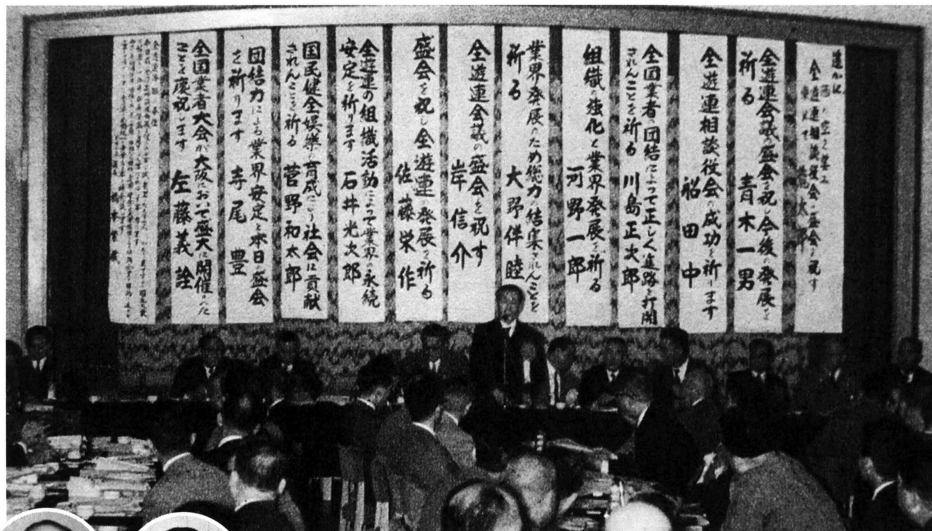 全遊連相談役会の盛会を祝す
全遊連会議の盛会を祝し今後の発展を
祈る 青木一男
全遊連相談役会の成功を祈ります
田中
全国業者の団結によって正しく進路を打開
されんことを祈る 川島正次郎
組織の強化と業界発展を祈る
河野一郎
業界発展のため総力の結集されんことを
祈る 大野伴睦
全遊連会議の盛会を祝す
岸信介
盛会を祝し全遊連の発展を祈る
佐藤栄作
全遊連の組織活動によって業界の永続
安定を祈ります 石井光次郎
国民健全娯楽の育成により社会に貢献
されんことを祈る 菅野和太郎
団結力による業界安定と本日の盛会
を祈ります 寺尾豊
全国業者大会が大阪において盛大に開催された
ことを慶祝します 左藤義詮